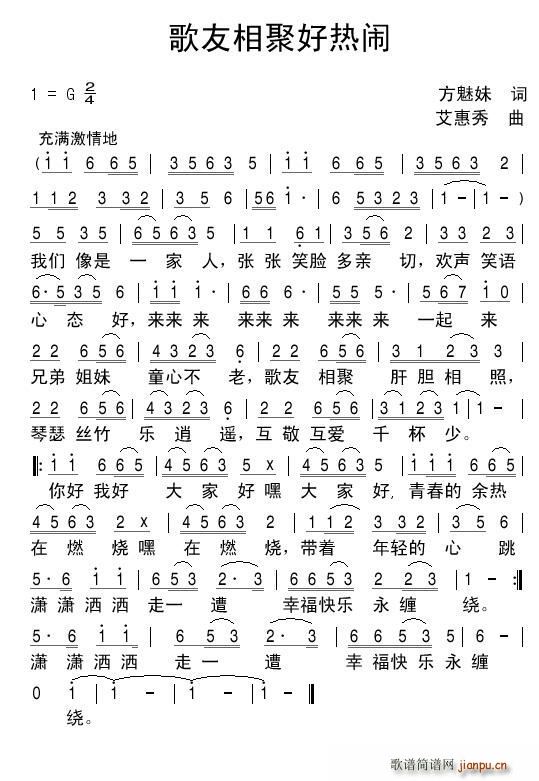 歌友相聚好热闹
1 = G 2/4
方魅妹 词
艾惠秀 曲
充满激情地
( i i 6 6 5 | 3 5 6 3 5 | i i 6 6 5 | 3 5 6 3 2 |
1 1 2 3 3 2 | 3 5 2 3 5 | 5 6 i · | 6 5 3 2 3 | 1 - | 1 - )
5 5 3 5 | 6 5 6 3 5 | 1 1 6 | 3 5 6 2 | 3 3 2 3 |
我们 像是 一 家 人，张 张 笑脸 多亲 切，欢声 笑语
6 · 5 3 5 | i i i · | 6 6 6 · | 5 5 5 · | 5 6 7 i 0 |
心 态 好，来来 来 来来 来 来来 来 一起 来
2 2 6 5 6 | 4 3 2 3 6 | 2 2 5 5 6 | 3 1 2 2 3 |
兄弟 姐妹 童心不 老，歌友 相聚 肝 胆 相 照，
2 2 6 5 6 | 4 3 2 3 5 | 2 2 5 5 6 | 3 1 2 3 1 |
琴瑟 丝竹 乐 逍 遥，互 敬 互爱 千 杯 少。
‖: i i 6 6 5 | 4 5 6 3 5 x | 4 5 6 3 5 | i i i 6 6 5 |
你好 我好 大 家 好嘿 大 家 好，青春的 余热
4 5 6 3 2 x | 4 5 6 3 2 | 1 1 2 | 3 3 2 3 5 |
在 燃 烧嘿 在 燃 烧，带着 年轻的 心 跳
5 · 6 i i | 6 5 3 2 · 3 | 5 6 5 3 | 2 2 3 2 | 1 - :‖
潇 潇 洒洒 走一 遭 幸福快乐 永 缠 绕。
5 · 6 i i | 6 5 3 2 · 3 | 5 6 5 3 | 2 2 3 2 |
潇 潇 洒洒 走 一 遭 幸 福快 乐 永 缠
0 i | i - | i - | i - ‖
绕。
歌谱简谱网
jianpu.cn